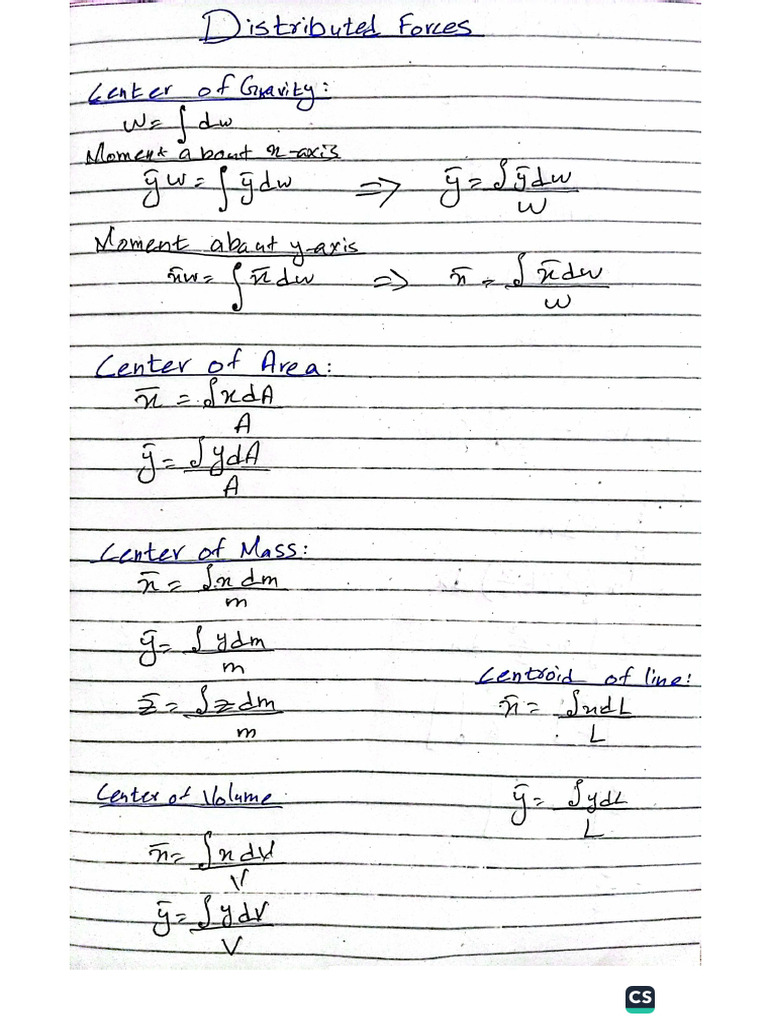 Distributed Forces
Center of Gravity:
w = ∫ dw
Moment about x-axis
ȳw = ∫ ȳdw => ȳ = ∫ȳdw / w
Moment about y-axis
x̄w = ∫ x̄dw => x̄ = ∫ x̄dw / w
Center of Area:
x̄ = ∫xdA / A
ȳ = ∫ydA / A
Center of Mass:
x̄ = ∫x dm / m
ȳ = ∫ydm / m
z̄ = ∫zdm / m
Centroid of line:
x̄ = ∫xdL / L
ȳ = ∫ydL / L
Center of Volume
x̄ = ∫xdV / V
ȳ = ∫ydV / V
CS